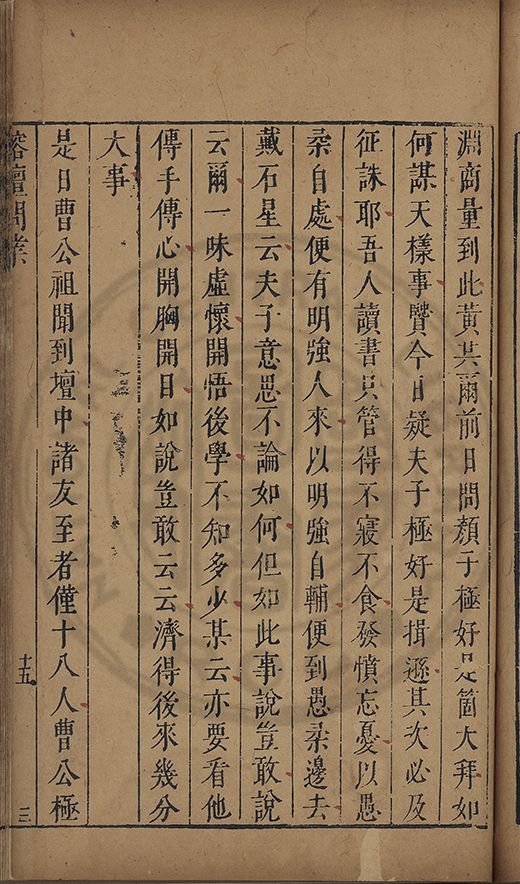 淵商量到此黃共爾前日問顏子極好是箇大拜如
何謀天樣事暨今日疑夫子極好是揖遜其次必及
征誅耶吾人讀書只管得不寢不食發憤忘憂以愚
柔自處便有明強人來以明強自輔便到愚柔邊去
戴石星云夫子意思不論如何但如此事說豈敢說
云爾一味虛懷開悟後學不知多少某云亦要看他
傳手傳心開胸開目如說豈敢云云濟得後來幾分
大事
是日曹公祖聞到壇中諸友至者僅十八人曹公極
榕壇問業
十五
三